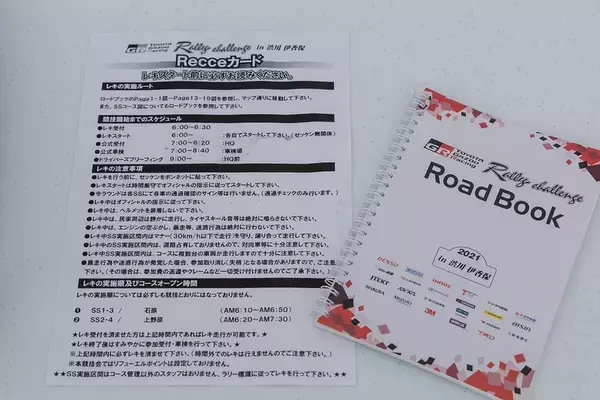 GR TOYOTA GAZOO Racing Rally challenge in 渋川 伊香保
Recceカード
レキスタート前に必ずお読みください。
レキの実施ルート
ロードブックのPage1-1図～Page13-19図を参照し、マップ通りに移動して下さい。
また、SSコース図についてもロードブックを参照して下さい。
競技開始までのスケジュール
●レキ受付 6:00～6:30
●レキスタート 6:00～ :各自でスタートして下さい。(ゼッケン無関係)
●公式受付 7:00～8:20 :HQ
●公式車検 7:00～8:40 :車検場
●ドライバーズブリーフィング 9:00～ :HQ前
レキの注意事項
●レキを行う前に、ゼッケンをボンネットに貼って下さい。
●レキスタートは時間厳守でオフィシャルの指示に従ってスタートして下さい。
●今ラウンドは各SSにて各車の通過確認のサイン等は行いません。(通過チェックのみ行います。)
●レキ中はオフィシャルの指示に従って下さい。
●レキ中は、ヘルメットを装着しないで下さい。
●レキ中は、民家周辺は静かに走行し、タイヤスキール音等は絶対に鳴らさないで下さい。
●レキ中は、エンジンの空ふかし、暴走等、迷惑行為は絶対に行わないで下さい。
●レキ中のSS実施区間内はマナー(30km/h以下で走行)を守り、譲り合って走行して下さい。
●レキ中のSS実施区間内は、道路占有しておりませんので、対向車等に十分注意して下さい。
●レキ中のSS実施区間内は、コースに複数台の車両が走行しますので十分に注意して下さい。
●暴走行為や迷惑行為が発覚した場合、参加取り消し(失格)となる場合がありますので、ご注意
下さい。(その場合は、参加費の返還やクレームなど一切受け付けませんのでご了承下さい。)
レキの実施順及びコースオープン時間
レキの実施順については必ずしも競技とおりにはなっておりません。
① SS1・3 / 石原 (AM6:10～AM6:50)
② SS2・4 / 上野原 (AM6:20～AM7:30)
★レキ受付を済ませた方は上記時間内であればレキ走行が可能です。★
★レキ終了後はすみやかに参加受付・車検を行って下さい。★
※上記時間内に必ずレキを済ませて下さい。(時間外でのレキは行えませんのでご注意下さい。)
※本競技会ではリフューエルポイントは設定しておりません。
★★SS実施区間はコース管理以外のスタッフはおりません、ラリー標識に従ってレキを行って下さい。★★
GR TOYOTA GAZOO Racing
Rally challenge
Road Book
2021
in 渋川 伊香保
DENSO
AISIN
ITEKT
NORUKA
MOZU
TRD